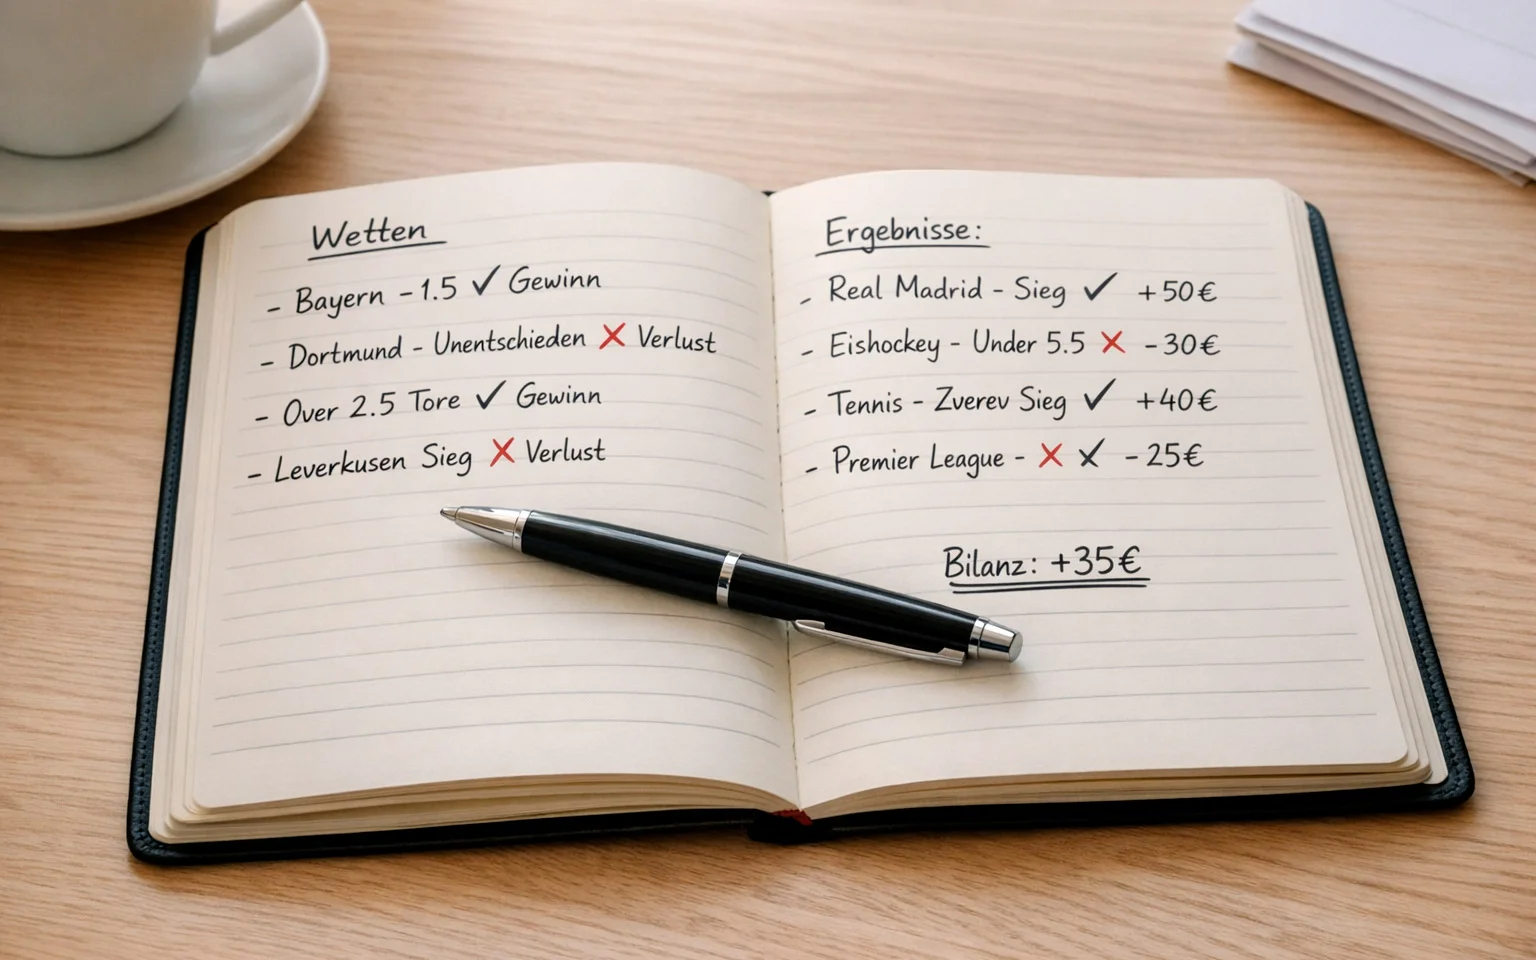 Wetten
- Bayern -1.5 ✓ Gewinn
- Dortmund - Unentschieden ✗ Verlust
- Over 2.5 Tore ✓ Gewinn
- Leverkusen Sieg ✗ Verlust
Ergebnisse:
- Real Madrid - Sieg ✓ +50€
- Eishockey - Under 5.5 ✗ -30€
- Tennis - Zverev Sieg ✓ +40€
- Premier League - ✗ ✗ -25€
Bilanz: +35€